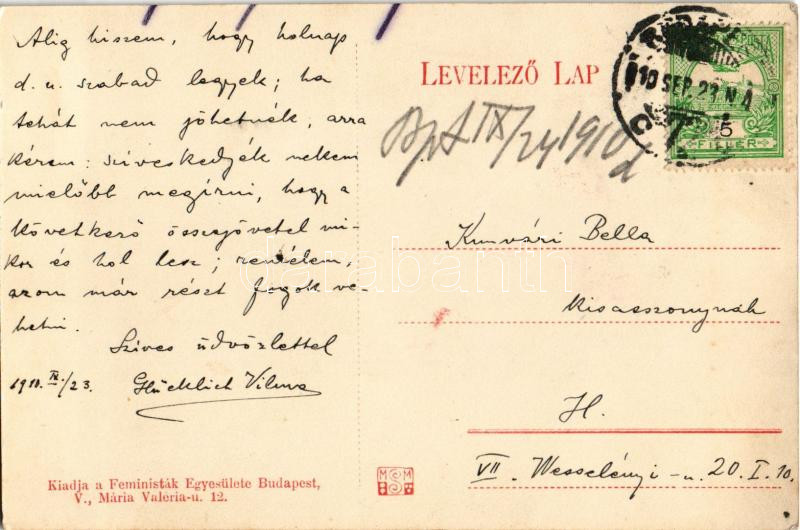 Alig hiszem, hogy holnap
d. u. szabad legyek; ha
tehát nem jöhetnék, arra
kérem: sziveskedjék nekem
mielőbb megirni, hogy a
következő összejövetel mi-
kor és hol lesz; remélem,
azon már részt fogok ve-
hetni.
Szives üdvözlettel
1910. IX./23. Glücklich Vilma
Kiadja a Feministák Egyesülete Budapest,
V., Mária Valeria-u. 12.
LEVELEZŐ LAP
Bpst IX/24 1910
10 SEP. 23 N
5
FILLÉR
Kunvári Bella
kisasszonynak
H.
VII. Wesselényi-u. 20. I. 10.
M M
darabanth